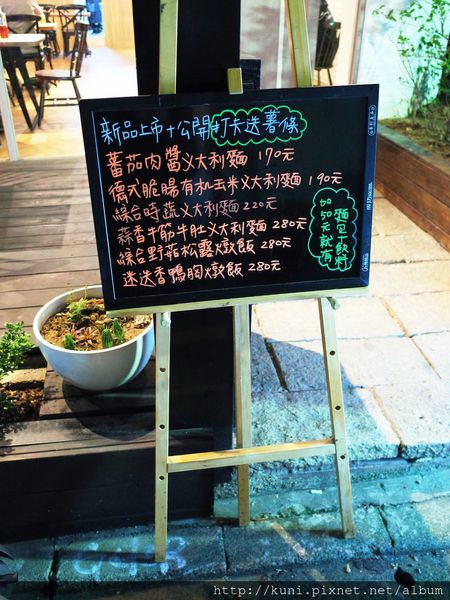 新品上市+公開打卡送薯條
蕃茄肉醬義大利麵 170元
德式脆腸有机玉米義大利麵 190元
綜合時蔬義大利麵 220元
蒜香牛筋牛肚義大利麵 280元
綜合野菇松露燉飯 280元
迷迭香鴨胸燉飯 280元
加50元就有
麵包+飲料
http://kuni.pixnet.net/album